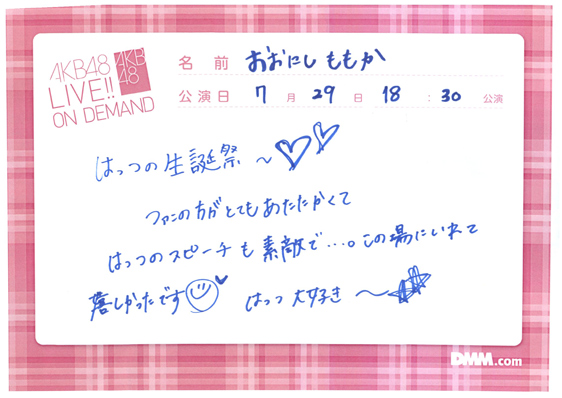 AKB48
LIVE!!
ON DEMAND
AKB
48
名前 おおにしももか
公演日 7月29日 18:30 公演
はっつの生誕祭〜♡♡
ファンの方がとてもあたたかくて
はっつのスピーチも素敵で…。この場にいれて
嬉しかったです はっつ大好き〜
DMM.com